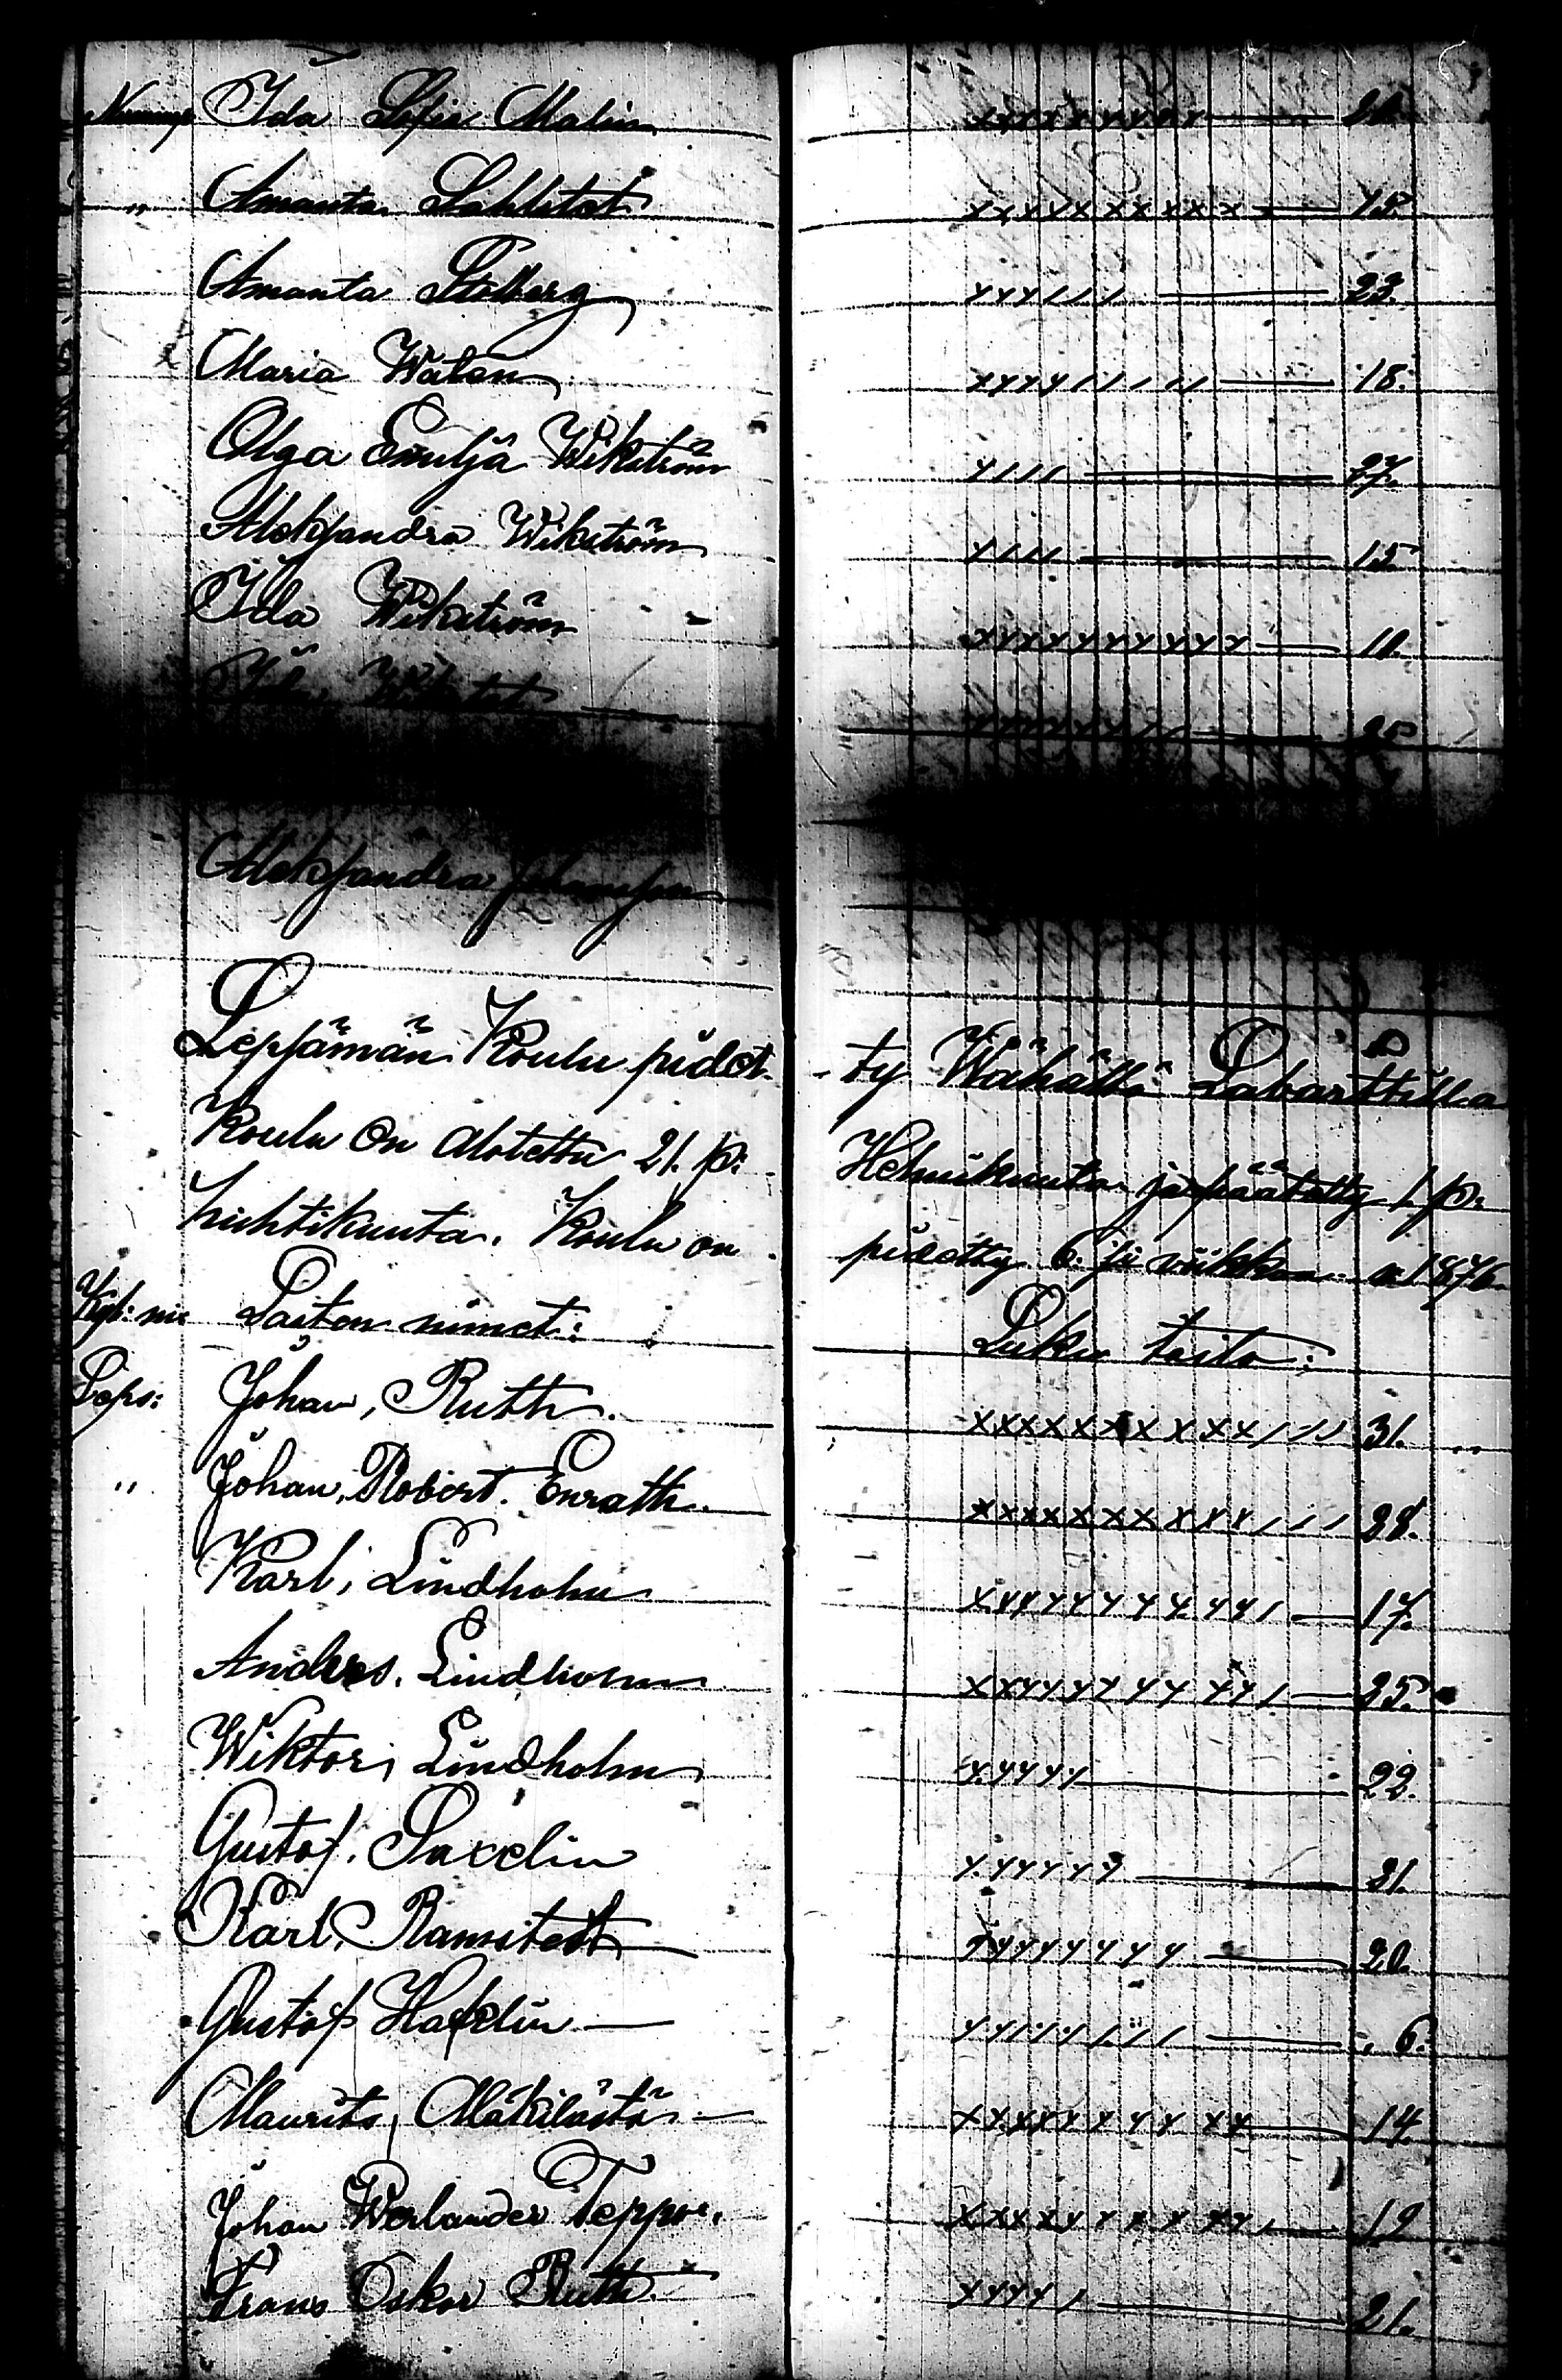 Ida Sofia Malin xxxxxxxxxx
" Amanta Sahlstet xxxxxxxxxxx 15.
Amanta Stolberg xxx/// 23.
Maria xxxx///// 18.
Olga Emiljä Wikström x//// 27.
Aleksandra Wikström x//// 15
Ida Wikström xxxxxxxxxxx 11.
Ida 25
Aleksandra Johansson
Lepsämän Koulu pidet- ty Wähällä Labarttilla
Koulu on alotettu 21. p: Helmikuuta ja päätetty 1 p:
huhtikuuta. Koulu on pidetty 6. si viikkoa 1876.
Kyl: ni: Lasten nimet: Luku taito:
Leps: Johan, Ruth. xxxxxxxxxxx/// 31.
" Johan, Robert. Enrath. xxxxxxxxxxx/// 28.
Karl, Lindholm xxxxxxxxxxx/ 17.
Anders. Lindholm xxxxxxxxxxx/ 25.
Wiktor, Lindholm xxxxx 22.
Gustaf. Saxelin xxxxxx 21.
Karl, Ramstedt xxxxxxxx 20.
Gustaf 6.
Maurits, Mäkilästä xxxxxxxxxx 14.
Johan Werlander Teppo. xxxxxxxxxx/ 19
Frans Oskar Ruth. xxxx/ 21.